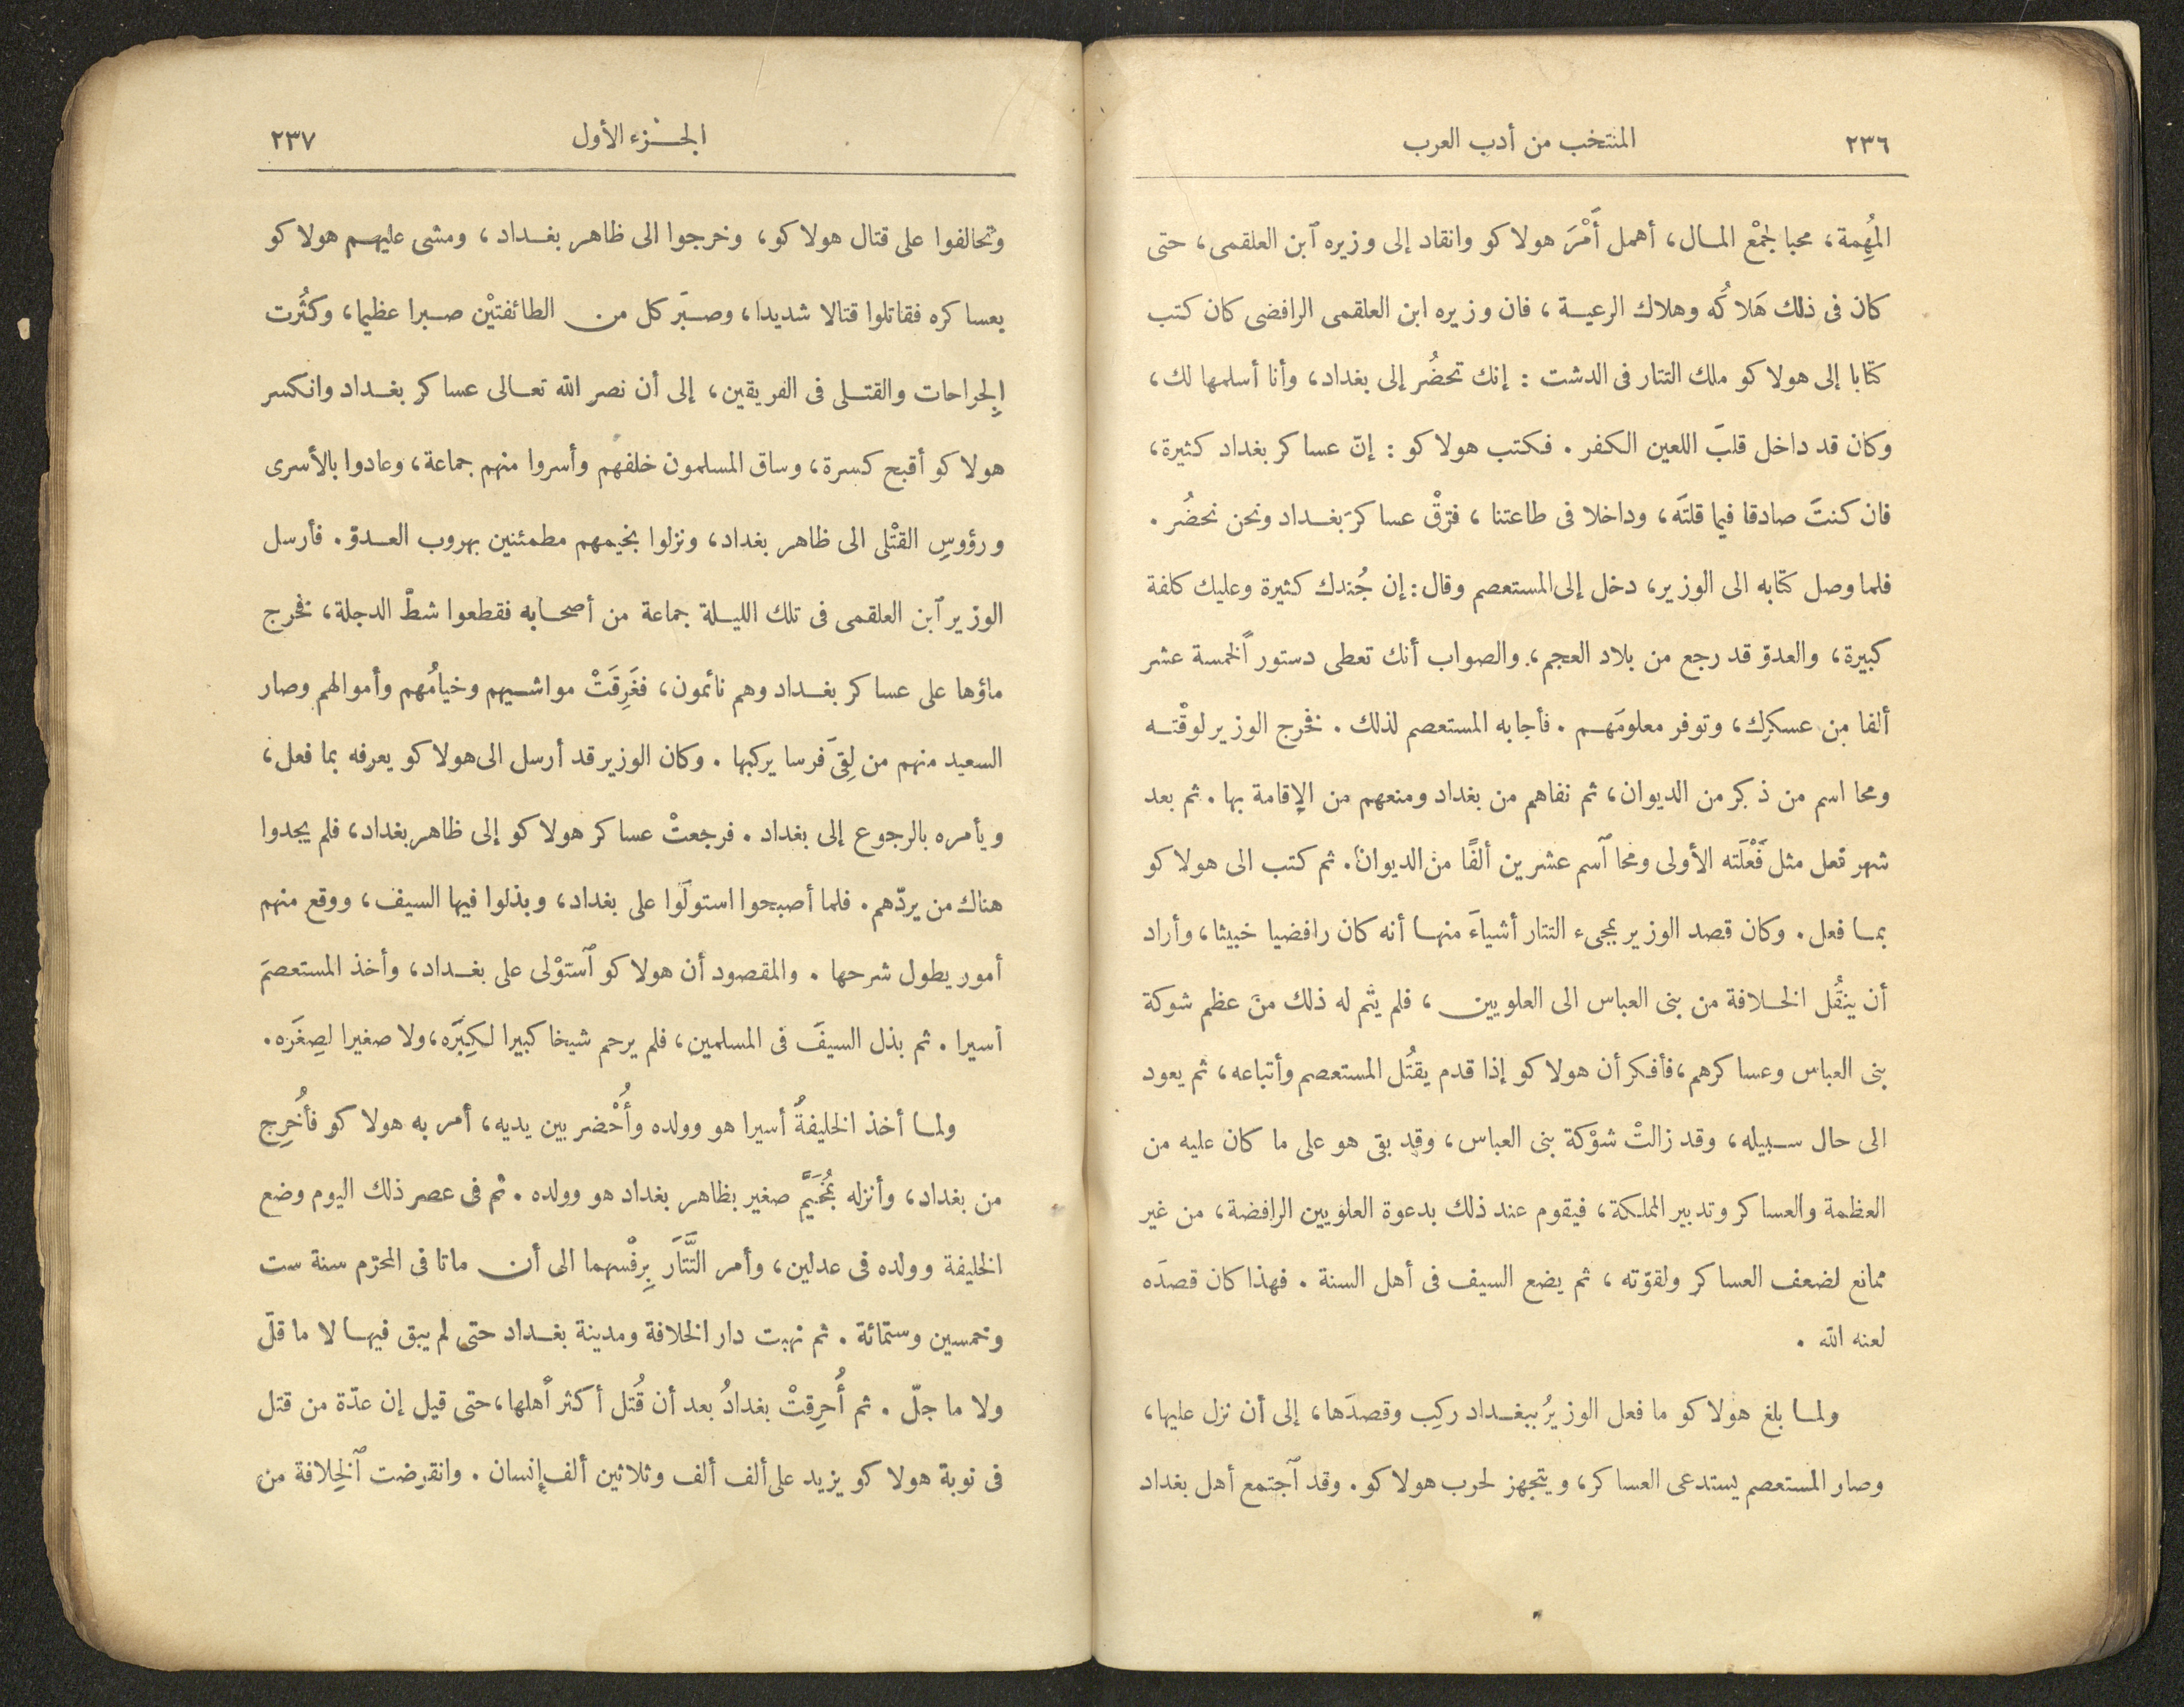 ٢٣٦
المنتخب من أدب العرب
المُهِمة، محبا لجمْع المال، أهمل أَمْرَ هولاكو وانقاد إلى وزيره ٱبن العلقمى، حتى
كان فى ذلك هَلاكُه وهلاك الرعية، فان وزيره ابن العلقمى الرافضى كان كتب
كتابا إلى هولاكو ملك التتار فى الدشت : إنك تحضُر إلى بغداد، وأنا أسلمها لك،
وكان قد داخل قلبَ اللعين الكفر . فكتب هولاكو : إنّ عساكر بغداد كثيرة،
فان كنتَ صادقا فيما قلتَه، وداخلا فى طاعتنا، فرّقْ عساكرَ بغداد ونحن نحضُر .
فلما وصل كتابه الى الوزير، دخل إلى المستعصم وقال : إن جُندك كثيرة وعليك كلفة
كبيرة، والعدوّ قد رجع من بلاد العجم، والصواب أنك تعطى دستورا لخمسة عشر
ألفا من عسكرك، وتوفر معلومَهم . فأجابه المستعصم لذلك . فخرج الوزير لوقْته
ومحا اسم من ذكر من الديوان، ثم نفاهم من بغداد ومنعهم من الإقامة بها . ثم بعد
شهر فعل مثل فَعْلَته الأولى ومحا ٱسم عشرين ألفًا من الديوان. ثم كتب الى هولاكو
بما فعل . وكان قصد الوزير بمجىء التتار أشياءَ منها أنه كان رافضيا خبيثا، وأراد
أن ينقُل الخلافة من بنى العباس الى العلويين، فلم يتم له ذلك من عظم شوكة
بنى العباس وعساكرهم، فأفكر أن هولاكو إذا قدم يقتُل المستعصم وأتباعه، ثم يعود
الى حال سبيله، وقد زالتْ شوْكة بنى العباس، وقد بقى هو على ما كان عليه من
العظمة والعساكر وتدبير المملكة، فيقوم عند ذلك بدعوة العلويين الرافضة، من غير
ممانع لضعف العساكر ولقوّته، ثم يضع السيف فى أهل السنة . فهذا كان قصدَه
لعنه الله .
ولما بلغ هولاكو ما فعل الوزيرُ ببغداد ركِب وقصدَها، إلى أن نزل عليها،
وصار المستعصم يستدعى العساكر، ويتجهز لحرب هولاكو . وقد ٱجتمع أهل بغداد
الجزء الأول
٢٣٧
وتحالفوا على قتال هولاكو، وخرجوا الى ظاهر بغداد، ومشى عليهم هولاكو
بعساكره فقاتلوا قتالا شديدا، وصبَر كل من الطائفتيْن صبرا عظيما، وكثُرت
الجِراحات والقتلى فى الفريقين، إلى أن نصر الله تعالى عساكر بغداد وانكسر
هولاكو أقبح كسرة، وساق المسلمون خلفهم وأسروا منهم جماعة، وعادوا بالأسرى
ورؤوسِ القتْلى الى ظاهر بغداد، ونزلوا بخيمهم مطمئنين بهروب العدوّ. فأرسل
الوزير ٱبن العلقمى فى تلك الليلة جماعة من أصحابه فقطعوا شطّ الدجلة، فخرج
ماؤها على عساكر بغداد وهم نائمون، فغَرِقَتْ مواشيهم وخيامُهم وأموالهم وصار
السعيد منهم من لِقىَ فرسا يركبها . وكان الوزير قد أرسل الى هولاكو يعرفه بما فعل،
ويأمره بالرجوع إلى بغداد . فرجعتْ عساكر هولاكو إلى ظاهر بغداد، فلم يجدوا
هناك من يردّهم . فلما أصبحوا استولَوا على بغداد، وبذلوا فيها السيف، ووقع منهم
أمور يطول شرحها . والمقصود أن هولاكو ٱستوْلى على بغداد، وأخذ المستعصمَ
أسيرا . ثم بذل السيفَ فى المسلمين، فلم يرحم شيخا كبيرا لكِبَره، ولا صغيرا لصِغَره.
ولما أخذ الخليفةُ أسيرا هو وولده وأُحْضر بين يديه، أمر به هولاكو فأُخرِج
من بغداد، وأنزله بمُخَيَّم صغير بظاهر بغداد هو وولده . ثم فى عصر ذلك اليوم وضع
الخليفة وولده فى عدلين، وأمر التَّتَارَ برِفْسهما الى أن ماتا فى المحرّم سنة ست
وخمسين وستمائة . ثم نهبت دار الخلافة ومدينة بغداد حتى لم يبق فيها لا ما قلّ
ولا ما جلّ . ثم أُحرِقتْ بغدادُ بعد أن قُتل أكثر أهلها، حتى قيل إن عدّة من قتل
فى نوبة هولاكو يزيد على ألف ألف وثلاثين ألف إنسان . وانقرضت ٱلخِلافة من